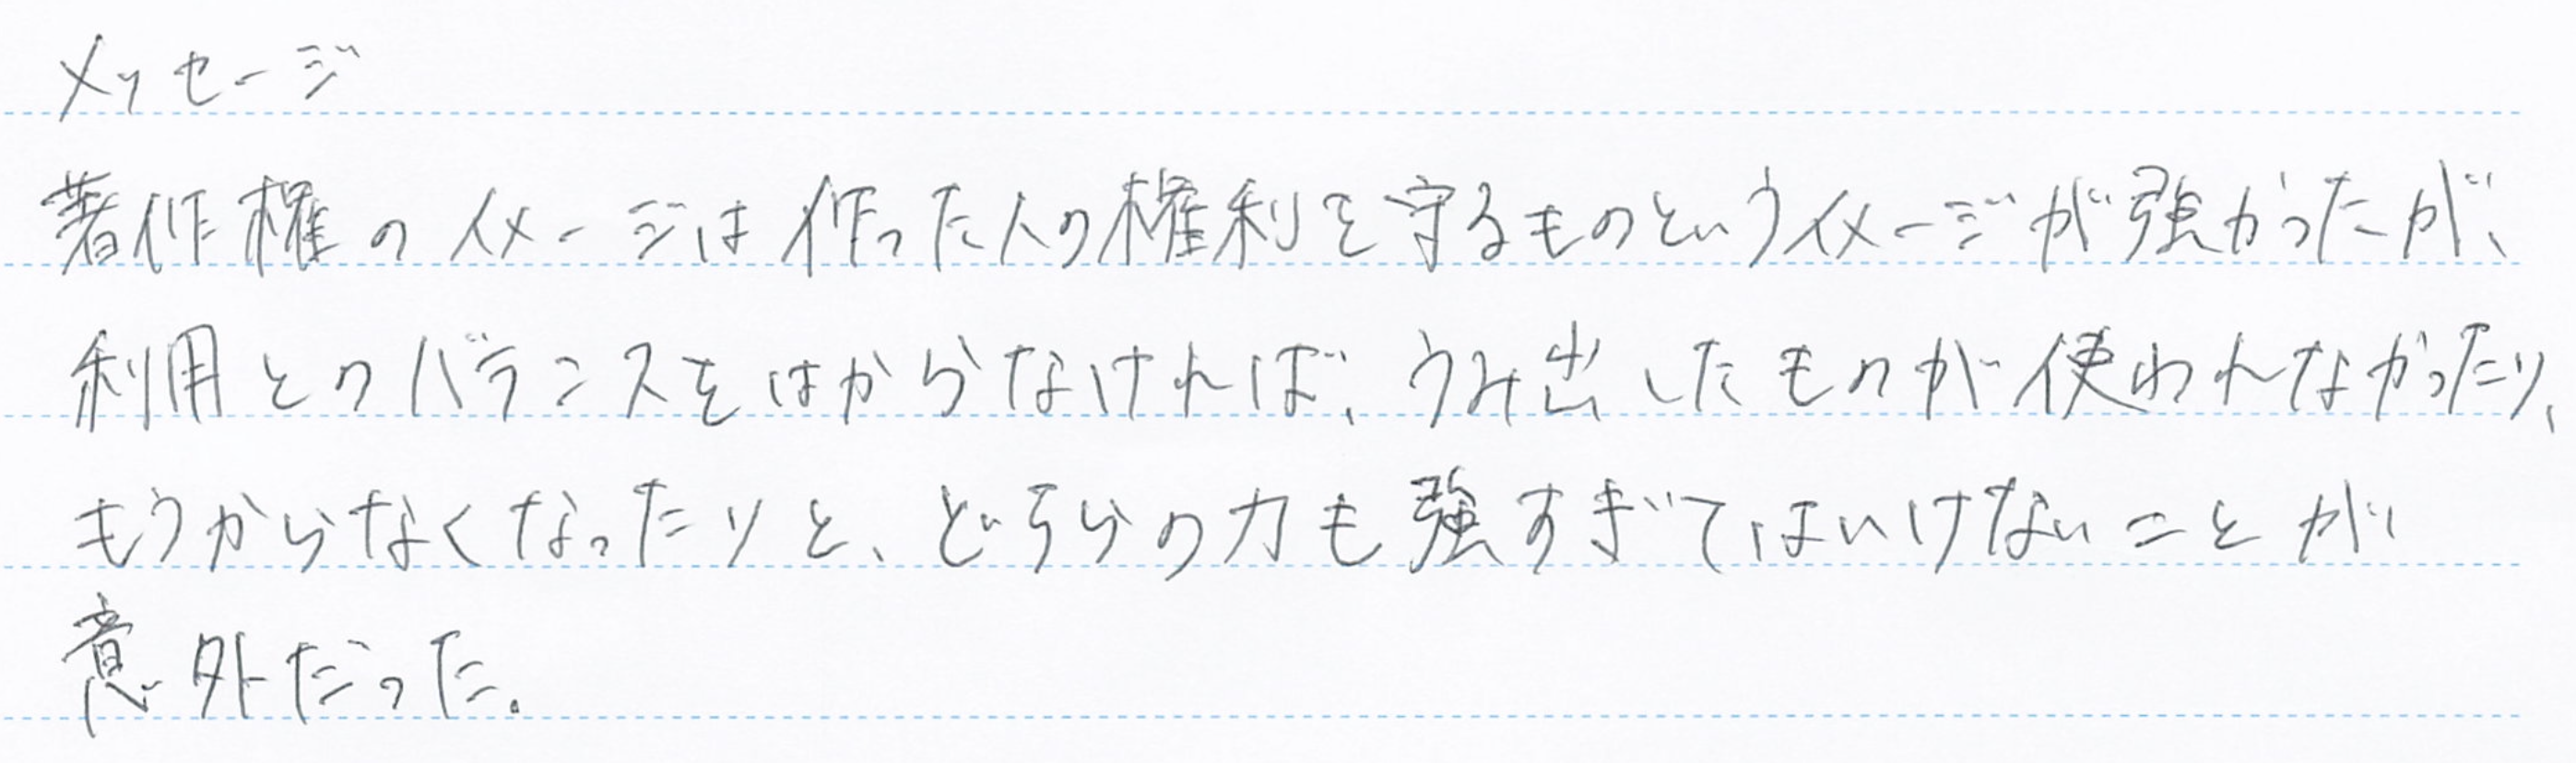 メッセージ
著作権のイメージは作った人の権利を守るものというイメージが強かったが、
利用とのバランスをはからなければ、うみ出したものが使われなかったり、
もうからなくなったりと、どちらの力も強すぎてはいけないことが
意外だった。